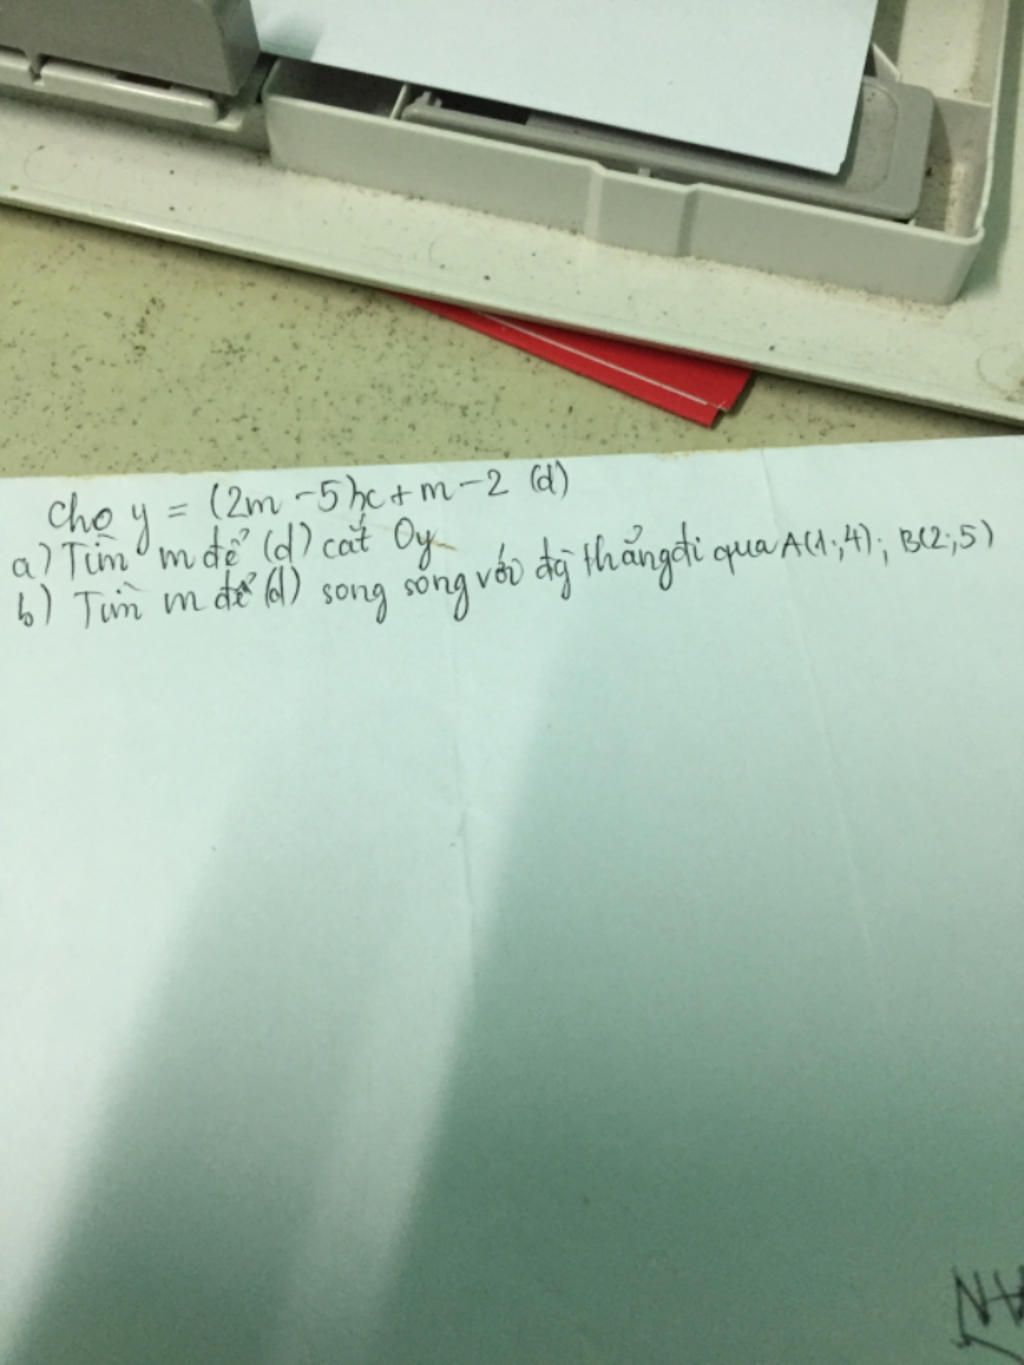 Cho y = (2m - 5)x + m - 2 (d)
a) Tìm m để (d) cắt Oy
b) Tìm m để (d) song song với đg thẳng đi qua A(1;4); B(2;5)